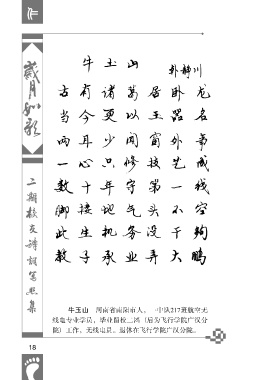 牛玉山
古有诸葛居卧龙
当今更以玉器名
两耳少闻窗外事
一心只修技艺成
数十年守第一线
脚接地气头不空
此生机务没干够
教子承业弄大鹏
牛玉山 河南省南阳市人。一中队217班航空无
线电专业学员，毕业留校二训（后为飞行学院广汉分
院）工作，无线电员，退休在飞行学院广汉分院。
岁月如歌
二期校友诗词写照集
18